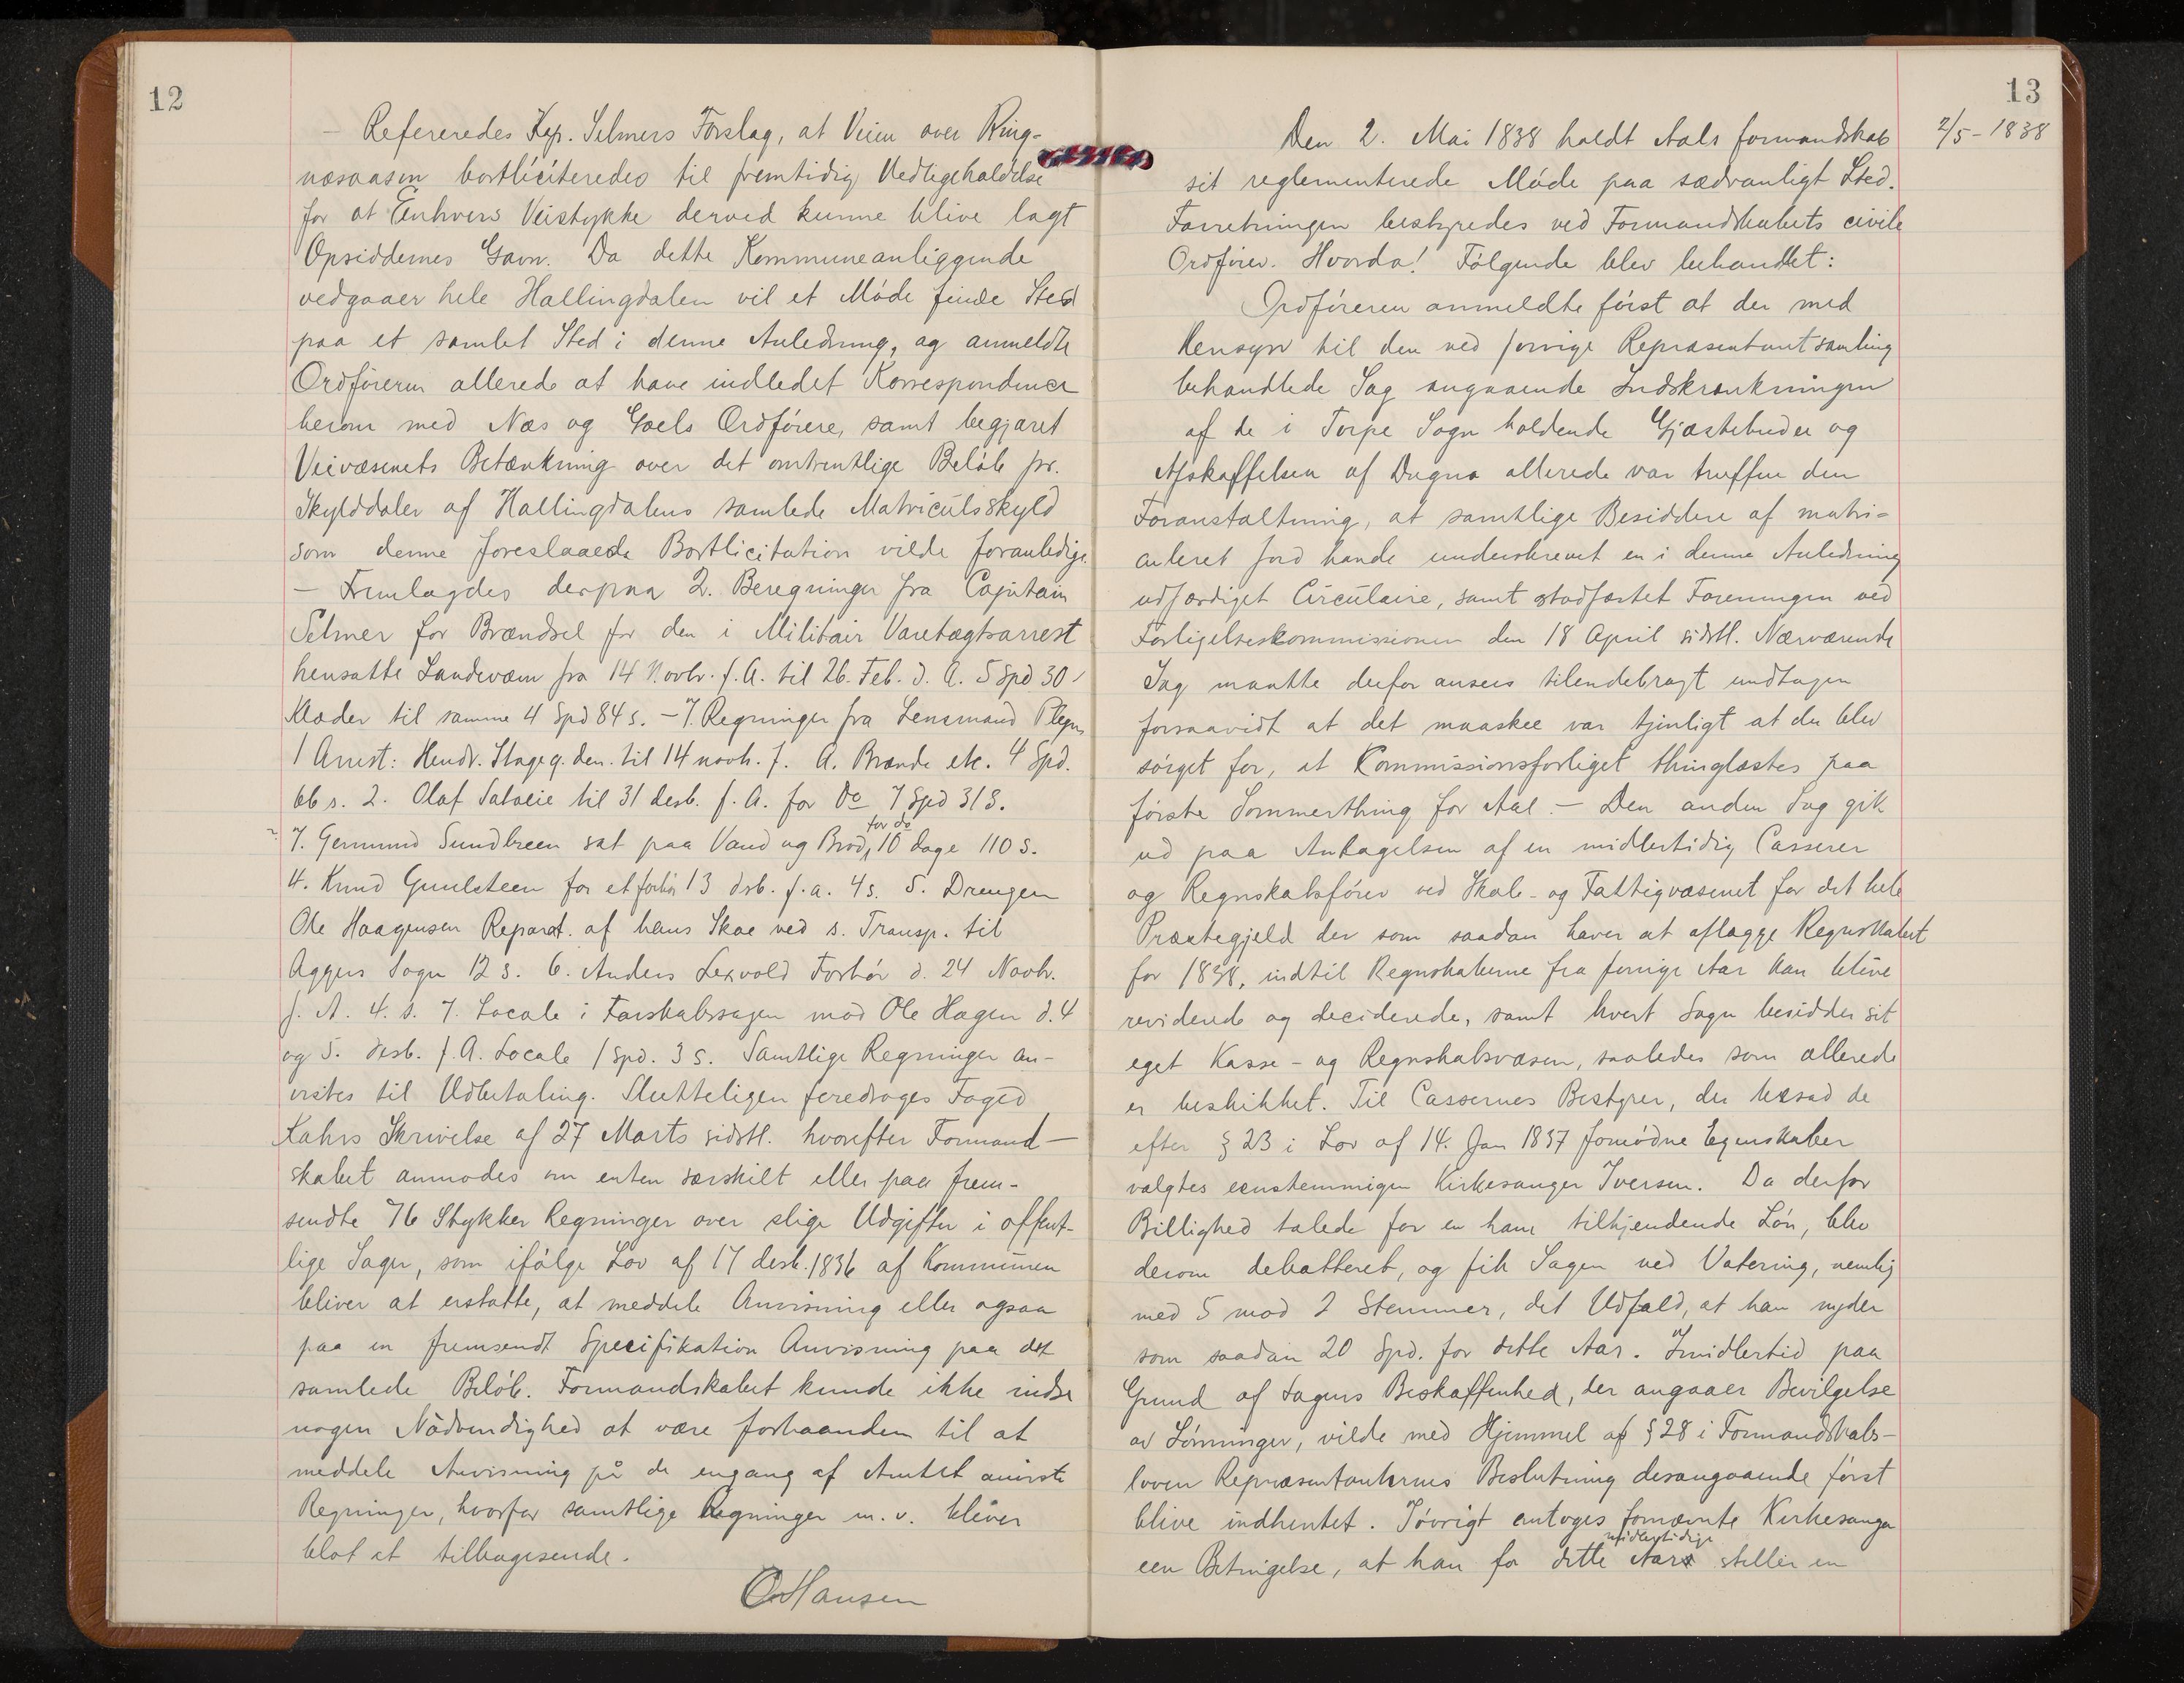 12
– Refereredes Kap. Selmers Forslag, at Veien over Ring-
næsaasen bortliciteredes til fremtidig Vedligeholdelse
for at Enhvers Veistykke derved kunne blive lagt
Opsiddernes Gavn. Da dette Kommuneanliggende
vedgaaer hele Hallingdalen vil et Møde finde Sted
paa et samlet Sted i denne Anledning, og anmeldte
Ordføreren allerede at have indledet Korrespondence
herom med Næs og Goels Ordførere, samt begjæret
Veivæsenets Betænkning over det omtrentlige Beløb pr.
Skylddaler af Hallingdalens samlede Matriculsskyld
som denne foreslaaede Bortlicitation vilde foranledige.
– Fremlagdes derpaa 2. Beregninger fra Capitain
Selmer for Brændsel for den i Militair Varetægtsarrest
hensatte Landeværn fra 14 Novbr. f. A. til 26. Feb. d. A. 5 Spd 30
Klæder til samme 4 Spd 84 s. – 7. Regninger fra Lensmand Plegn
1 Arrest: Hendr. Stageg. den. til 14 novb. f. A. Brænde etc. 4 Spd.
66 s. 2. Olaf Sataeie til 31 desb. f. A. for Do 7 Spd 31 S.
7. Germund Sundbreen sat paa Vand og Brød, for do 10 dage 110 s.
4. Knud Gunlsteen for et forhør 13 dsb. f. a. 4 s. 5. Drengen
Ole Haagensen Reparat. af hans Skoe ved s. Transp. til
Aggers Sogn 12 s. 6. Anders Lexvold Forhør d. 24 Novbr.
f. A. 4. s. 7. Locale i Farskabssagen mod Ole Hagen d. 4
og 5. desb. f. A. Locale 1 Spd. 3 s. Samtlige Regninger an-
vistes til Udbetaling. Slutteligen foredroges Foged
Kahrs Skrivelse af 27 Marts sidstl. hvorefter Formand-
skabet anmodes om enten særskilt eller paa frem-
sendte 76 Stykker Regninger over slige Udgifter i offent-
lige Sager, som ifølge Lov af 17 desb. 1836 af Kommunen
bliver at erstatte, at meddele Anvisning eller ogsaa
paa en fremsendt Specifikation Anvisning paa det
samlede Beløb. Formandskabet kunde ikke indse
nogen Nødvendighed at være forhaanden til at
meddele Anvisning på de engang af Amtet anviste
Regninger, hvorfor samtlige Regninger m. v. bliver
blot at tilbagesende.
O Hansen
13
2/5 - 1838
Den 2. Mai 1838 holdt Aals formandskab
sit reglementerede Møde paa sædvanligt Sted.
Forretningen bestyredes ved Formandskabets civile
Ordfører. Hvorda! Følgende blev behandlet:
Ordføreren anmeldte først at der med
Hensyn til den ved forrige Repræsentantsamling
behandlede Sag angaaende Indskrænkningen
af de i Torpe Sogn holdende Gjæstebuder og
Afskaffelsen af Dugna allerede var truffen den
Foranstaltning, at samtlige Besiddere af matri-
culeret Jord havde underskrevet en i denne Anledning
udfærdiget Circulaire, samt stadfæstet Foreningen ved
Forligelseskommissionen den 18 April sidstl. Nærværende
Sag maatte derfor ansees tilendebragt undtagen
forsaavidt at det maaskee var tjenligt at der blev
sørget for, at Kommissionsforliget thinglæstes paa
første Sommerthing for Aal. – Den anden Sag gik
ud paa Antagelsen af en midlertidig Casserer
og Regnskabsfører ved Skole- og Fattigvæsenet for det hele
Præstegjeld der som saadan haver at aflægge Regnskabet
for 1838, indtil Regnskaberne fra forrige Aar kan blive
reviderede og deciderede, samt hvert Sogn besidder sit
eget Kasse- og Regnskabsvæsen, saaledes som allerede
er beskikket. Til Cassernes Bestyrer, der besad de
efter § 23 i Lov af 14. Jan 1837 fornødne Egenskaber
valgtes eenstemmigen Kirkesanger Iversen. Da derfor
Billighed talede for en ham tilkjendende Løn, blev
derom debatteret, og fik Sagen ved Votering, nemlig
med 5 mod 2 Stemmer, det Udfald, at han nyder
som saadan 20 Spd. for dette Aar. Imidlertid paa
Grund af Sagens Beskaffenhed, der angaaer Bevilgelse
av Lønninger, vilde med Hjemmel af § 28 i Formandskabs-
loven Repræsentanternes Beslutning desangaaende først
blive indhentet. Iøvrigt antoges fornævnte Kirkesanger
een Betingelse, at han for dette midlertidige Aar stiller en